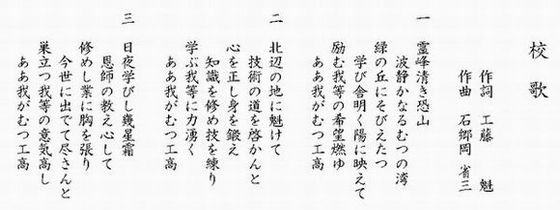 校歌
作詞　工藤　魁
作曲　石郷岡　省三
一
霊峰清き恐山
波静かなるむつの湾
緑の丘にそびえたつ
学び舎明く陽に映えて
励む我等の希望燃ゆ
ああ我がむつ工高
二
北辺の地に魁けて
技術の道を啓かんと
心を正し身を鍛え
知識を修め技を練り
学ぶ我等に力湧く
ああ我がむつ工高
三
日夜学びし幾星霜
恩師の教え心して
修めし業に胸を張り
今世に出でて尽さんと
巣立つ我等の意気高し
ああ我がむつ工高